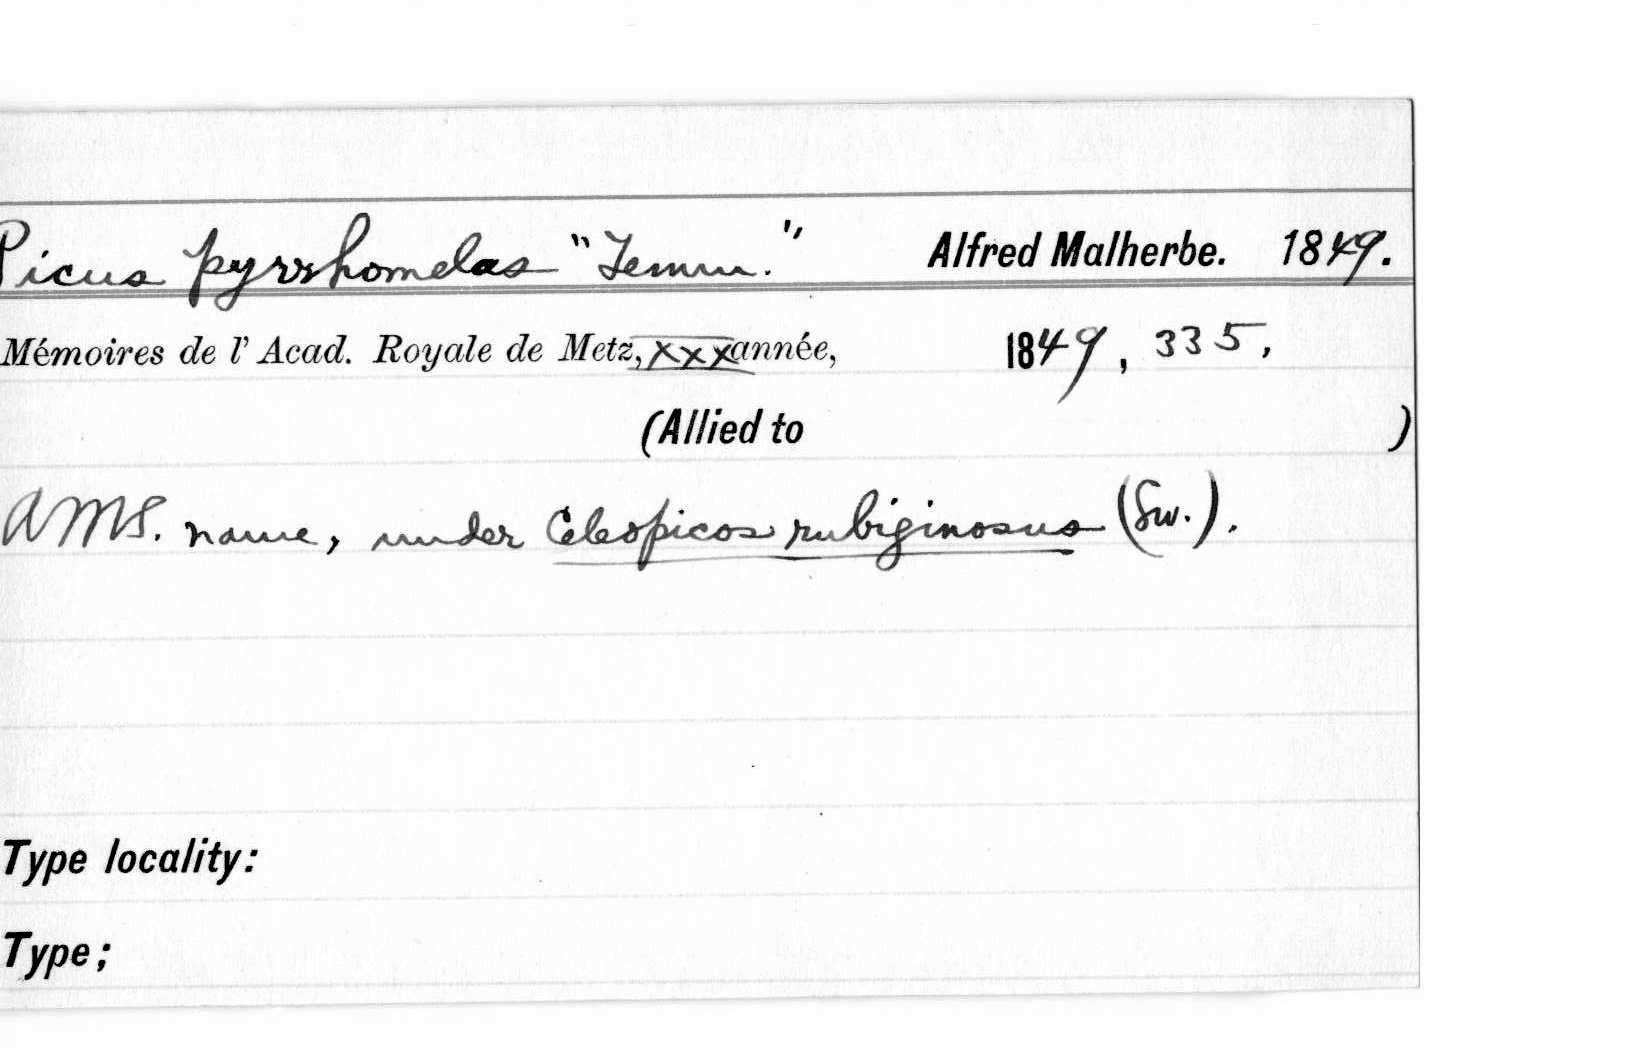 Picus pyrrhomelas "Temm." Alfred Malherbe. 1849.
Mémoires de l' Acad. Royale de Metz, XXX année, 1849, 335,
(Allied to )
A MS. name, under Celeopicos rubiginosus (Sw.).
Type locality:
Type;